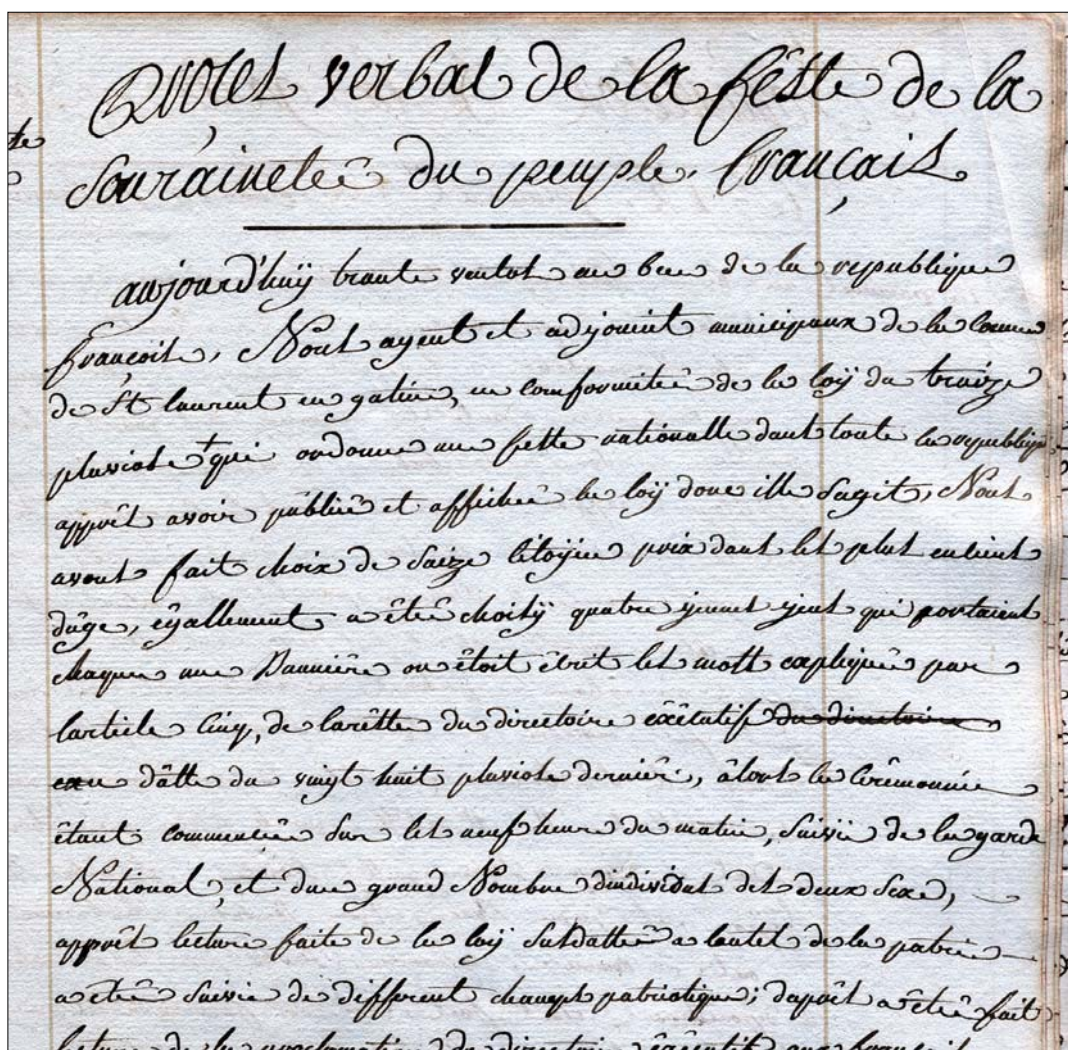 Proces verbal de la fêste de la
Souraineteê du peuple, français
aujourd'huÿ trante ventos an de la republique
françois, Nous agent et adjoint municipaux de la Comune
de St laurent en gatine, en comformiteê de la loÿ du traize
pluviose + qui ordonne une fette nationalle dans toute la republique
apprês avoir publiê et afficheê la loÿ donc ille Sagit, Nous
avons fait choix de Saize Citoÿin prix dans les plus entient
dâge, êgallement a êteê choisÿ quatre jeunes gens qui portaient
chaque une Banniêre ou êtoit êcrit les mots expliqueê par
larticle Cinq, de larêtte du directoire exêcutif du directoire
en dâtte du vingt huit pluviose derniêr, âlors la Cerêmonnie
êtant commenceê Sur les neuf heure du matin, Suivie de la garde
National, et dun grand Nombre dindividus des deux Sexe,
apprês lecture faite de la loy Susdatteê a lautel de la patrie
a eteê Suivie de different champs patriotique; daprês a êteê fait
lecture de la proclamation du directoire exêcutif aux français
te